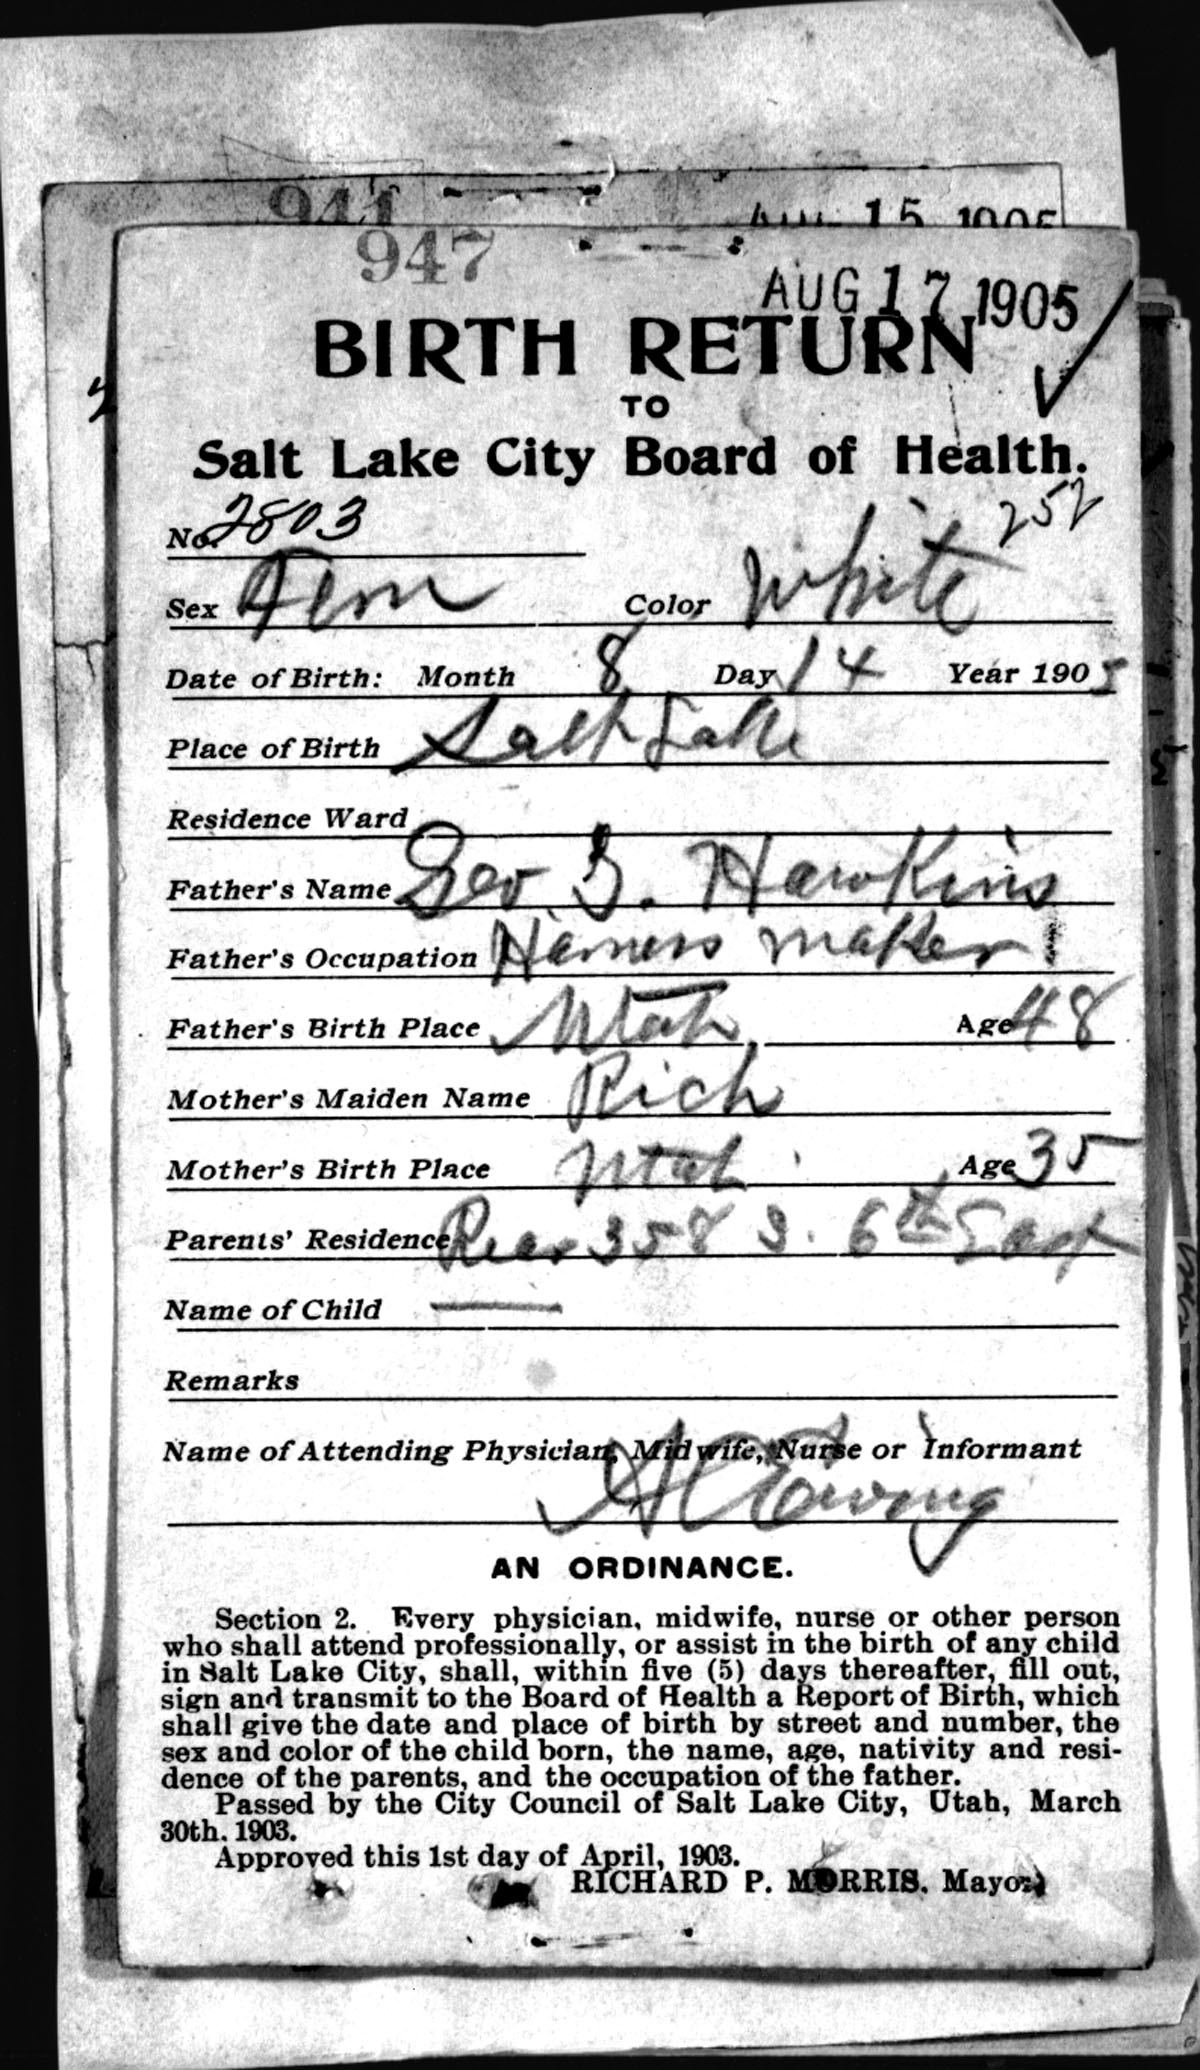 941
AUG 15 1905
947
AUG 17 1905
BIRTH RETURN
TO
Salt Lake City Board of Health.
252
No. 2803
Sex Fem Color White
Date of Birth: Month 8 Day 14 Year 1905
Place of Birth Salt Lake
Residence Ward
Father's Name Geo. S. Hawkins
Father's Occupation Harness maker
Father's Birth Place Utah Age 48
Mother's Maiden Name Rich
Mother's Birth Place Utah Age 35
Parents' Residence Rear 358 S. 6th East
Name of Child —
Remarks
Name of Attending Physician, Midwife, Nurse or Informant
Ewing
AN ORDINANCE.
Section 2. Every physician, midwife, nurse or other person
who shall attend professionally, or assist in the birth of any child
in Salt Lake City, shall, within five (5) days thereafter, fill out,
sign and transmit to the Board of Health a Report of Birth, which
shall give the date and place of birth by street and number, the
sex and color of the child born, the name, age, nativity and resi-
dence of the parents, and the occupation of the father.
Passed by the City Council of Salt Lake City, Utah, March
30th, 1903.
Approved this 1st day of April, 1903.
RICHARD P. MORRIS, Mayor.